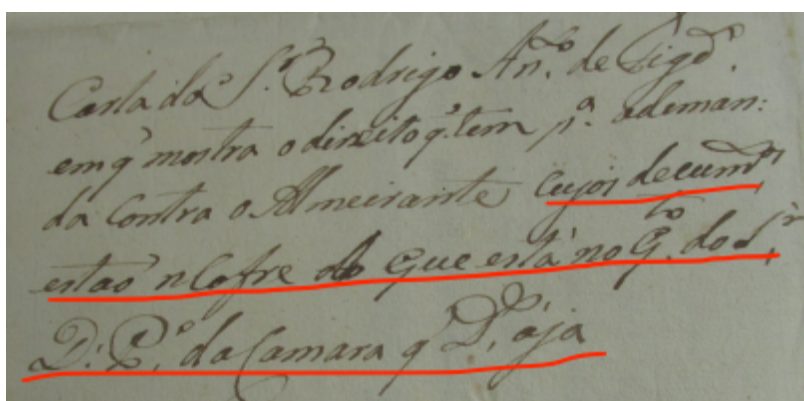 Carta do S.r Rodrigo An.to de Fig.do
em q̃ mostra o direito q̃. tem p.a ademan:
da Contra o Almeirante cujos decum.tos
estaõ n Cofre do Que está no G.to do S.r
D: P.o da Camara q̃ D.s aja